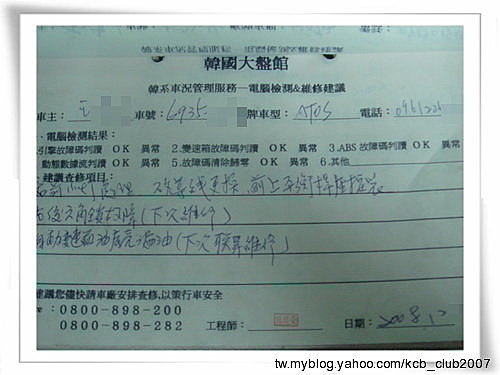 韓國大盤館
韓系車況管理服務—電腦檢測&維修建議
車主: 王 車號: 6935 牌車型: ATOS 電話: 0961221
、電腦檢測結果:
引擎故障碼判讀 OK 異常 2.變速箱故障碼判讀 OK 異常 3.ABS故障碼判讀 OK 異常
動態數據流判讀 OK 異常 5.故障碼清除歸零 OK 異常 6.其他
建議查修項目:
更換 前上
右後三角鎖故障(下次維修)
自動變速箱油底殼漏油(下次 維修)
建議您儘快請車廠安排查修,以策行車安全
: 0800-898-200
0800-898-282 工程師: 日期: 2008.12
tw.myblog.yahoo.com/kcb_club2007